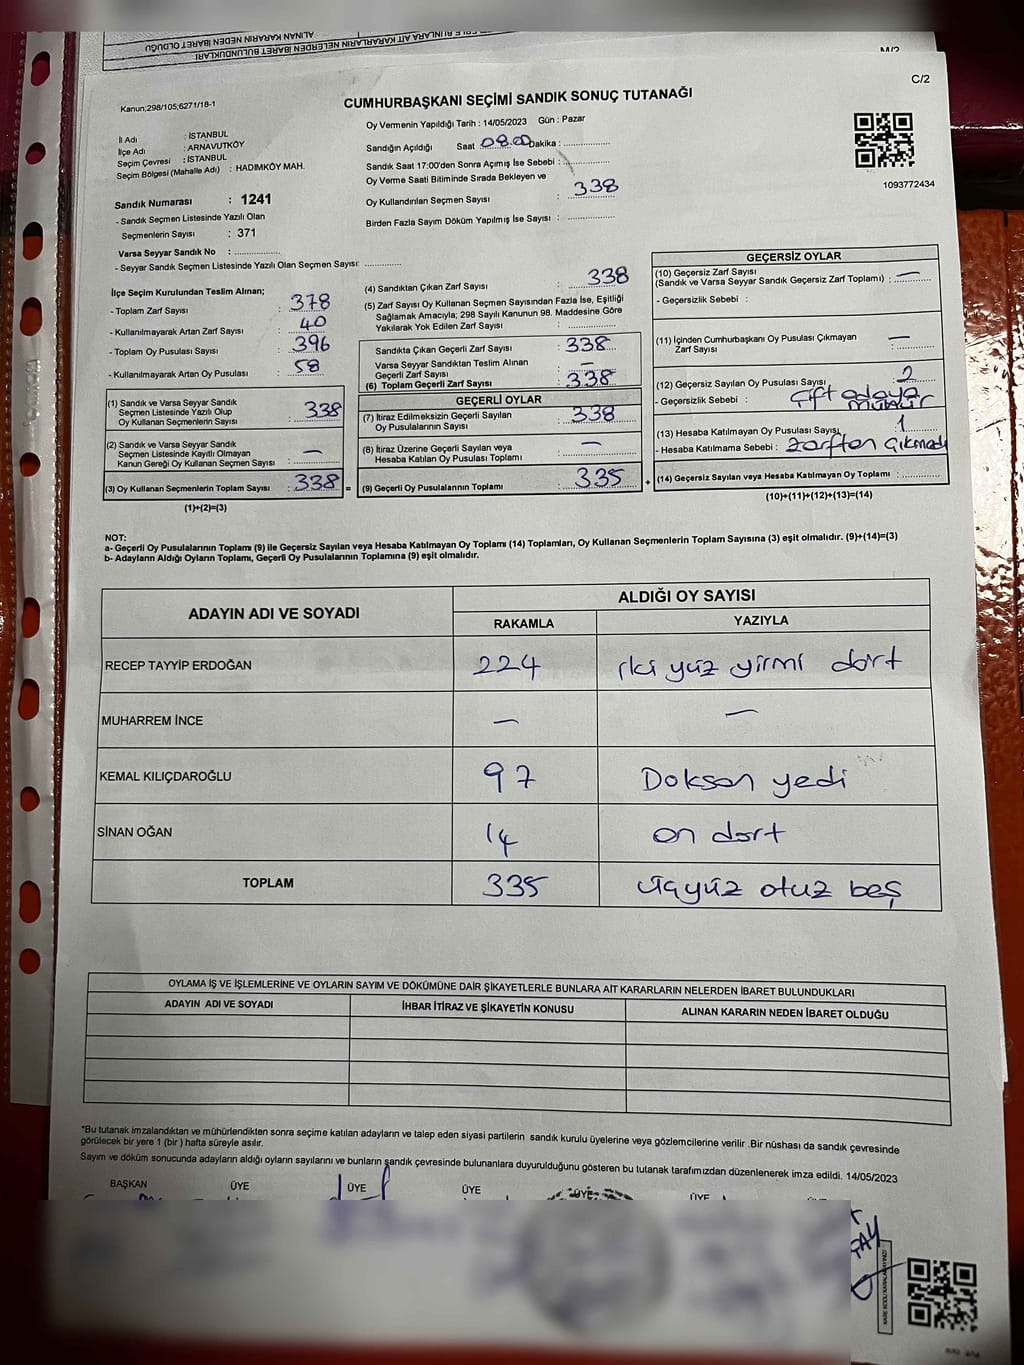 ALINAN KARARIN NEDEN İBARET OLDUĞU
M/2
C/2
Kanun;298/105;6271/18-1
CUMHURBAŞKANI SEÇİMİ SANDIK SONUÇ TUTANAĞI
İl Adı : İSTANBUL
İlçe Adı : ARNAVUTKÖY
Seçim Çevresi : İSTANBUL
Seçim Bölgesi (Mahalle Adı) : HADIMKÖY MAH.
Sandık Numarası : 1241
- Sandık Seçmen Listesinde Yazılı Olan
Seçmenlerin Sayısı : 371
Varsa Seyyar Sandık No :
- Seyyar Sandık Seçmen Listesinde Yazılı Olan Seçmen Sayısı:
Oy Vermenin Yapıldığı Tarih : 14/05/2023 Gün : Pazar
Sandığın Açıldığı Saat 08.00 Dakika :
Sandık Saat 17:00'den Sonra Açımış İse Sebebi :
Oy Verme Saati Bitiminde Sırada Bekleyen ve
Oy Kullandırılan Seçmen Sayısı : 338
Birden Fazla Sayım Döküm Yapılmış İse Sayısı :
1093772434
İlçe Seçim Kurulundan Teslim Alınan;
- Toplam Zarf Sayısı : 378
- Kullanılmayarak Artan Zarf Sayısı : 40
- Toplam Oy Pusulası Sayısı : 396
- Kullanılmayarak Artan Oy Pusulası : 58
(1) Sandık ve Varsa Seyyar Sandık
Seçmen Listesinde Yazılı Olup
Oy Kullanan Seçmenlerin Sayısı : 338
(2) Sandık ve Varsa Seyyar Sandık
Seçmen Listesinde Kayıtlı Olmayan
Kanun Gereği Oy Kullanan Seçmen Sayısı : —
(3) Oy Kullanan Seçmenlerin Toplam Sayısı : 338 =
(1)+(2)=(3)
(4) Sandıktan Çıkan Zarf Sayısı : 338
(5) Zarf Sayısı Oy Kullanan Seçmen Sayısından Fazla İse, Eşitliği
Sağlamak Amacıyla; 298 Sayılı Kanunun 98. Maddesine Göre
Yakılarak Yok Edilen Zarf Sayısı :
Sandıkta Çıkan Geçerli Zarf Sayısı : 338
Varsa Seyyar Sandıktan Teslim Alınan
Geçerli Zarf Sayısı : —
(6) Toplam Geçerli Zarf Sayısı : 338
GEÇERLİ OYLAR
(7) İtiraz Edilmeksizin Geçerli Sayılan
Oy Pusulalarının Sayısı : 338
(8) İtiraz Üzerine Geçerli Sayılan veya
Hesaba Katılan Oy Pusulası Toplamı : —
(9) Geçerli Oy Pusulalarının Toplamı : 335 +
GEÇERSİZ OYLAR
(10) Geçersiz Zarf Sayısı
(Sandık ve Varsa Seyyar Sandık Geçersiz Zarf Toplamı) : —
- Geçersizlik Sebebi :
(11) İçinden Cumhurbaşkanı Oy Pusulası Çıkmayan
Zarf Sayısı : —
(12) Geçersiz Sayılan Oy Pusulası Sayısı : 2
- Geçersizlik Sebebi : Çift adaya
mühür
(13) Hesaba Katılmayan Oy Pusulası Sayısı : 1
- Hesaba Katılmama Sebebi : Zarftan Çıkmadı
(14) Geçersiz Sayılan veya Hesaba Katılmayan Oy Toplamı :
(10)+(11)+(12)+(13)=(14)
NOT:
a- Geçerli Oy Pusulalarının Toplamı (9) ile Geçersiz Sayılan veya Hesaba Katılmayan Oy Toplamı (14) Toplamları, Oy Kullanan Seçmenlerin Toplam Sayısına (3) eşit olmalıdır. (9)+(14)=(3)
b- Adayların Aldığı Oyların Toplamı, Geçerli Oy Pusulalarının Toplamına (9) eşit olmalıdır.
ADAYIN ADI VE SOYADI ALDIĞI OY SAYISI
RAKAMLA YAZIYLA
RECEP TAYYİP ERDOĞAN 224 iki yüz yirmi dört
MUHARREM İNCE — —
KEMAL KILIÇDAROĞLU 97 Doksan yedi
SİNAN OĞAN 14 on dört
TOPLAM 335 üçyüz otuz beş
OYLAMA İŞ VE İŞLEMLERİNE VE OYLARIN SAYIM VE DÖKÜMÜNE DAİR ŞİKAYETLERLE BUNLARA AİT KARARLARIN NELERDEN İBARET BULUNDUKLARI
ADAYIN ADI VE SOYADI İHBAR İTİRAZ VE ŞİKAYETİN KONUSU ALINAN KARARIN NEDEN İBARET OLDUĞU
*Bu tutanak imzalandıktan ve mühürlendikten sonra seçime katılan adayların ve talep eden siyasi partilerin sandık kurulu üyelerine veya gözlemcilerine verilir .Bir nüshası da sandık çevresinde
görülecek bir yere 1 (bir ) hafta süreyle asılır.
Sayım ve döküm sonucunda adayların aldığı oyların sayılarını ve bunların sandık çevresinde bulunanlara duyurulduğunu gösteren bu tutanak tarafımızdan düzenlenerek imza edildi. 14/05/2023
BAŞKAN ÜYE ÜYE ÜYE ÜYE ÜYE